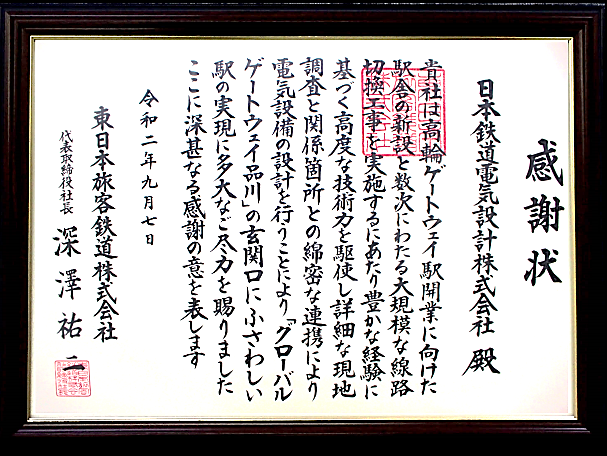 感謝状
日本鉄道電気設計株式会社 殿
貴社は高輪ゲートウェイ駅開業に向けた
駅舎の新設と数次にわたる大規模な線路
切換工事を実施するにあたり豊かな経験に
基づく高度な技術力を駆使し詳細な現地
調査と関係箇所との綿密な連携により
電気設備の設計を行うことにより「グローバル
ゲートウェイ品川」の玄関口にふさわしい
駅の実現に多大なご尽力を賜りました
ここに深甚なる感謝の意を表します
令和二年九月七日
東日本旅客鉄道株式会社
代表取締役社長 深澤祐二